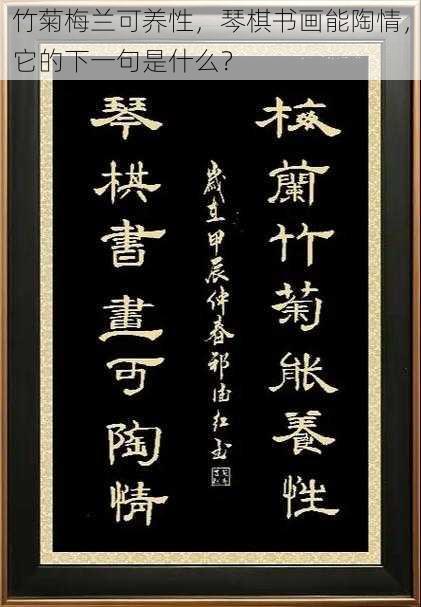 竹菊梅兰可养性，琴棋书画能陶情，
它的下一句是什么？
梅蘭竹菊能養性
歲在甲辰仲春祁红
琴棋書畫可陶情